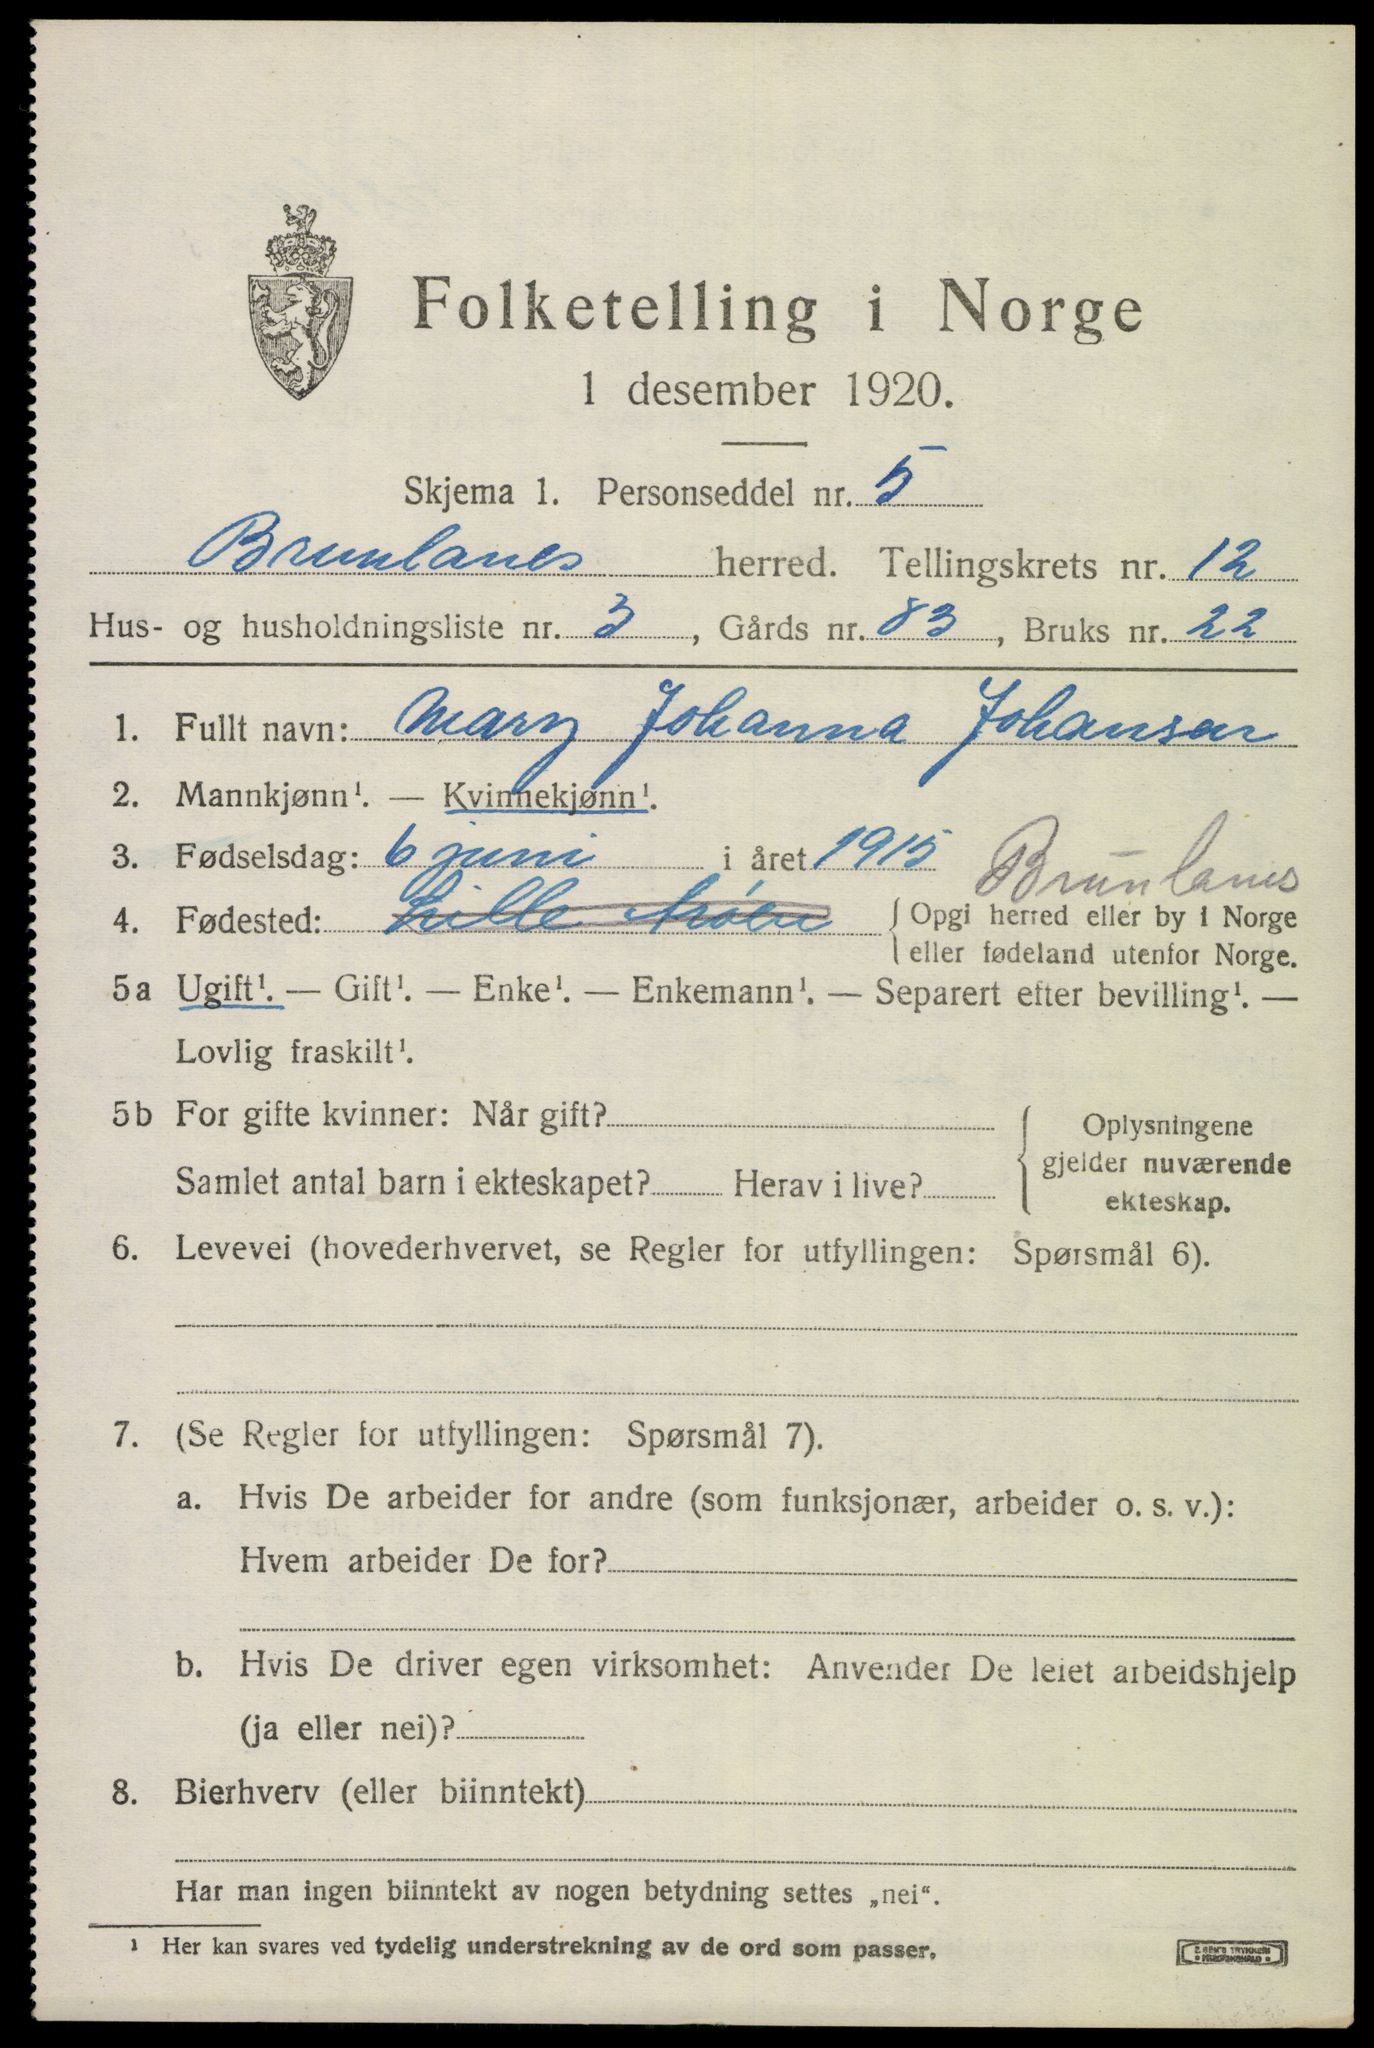 Folketelling i Norge
1 desember 1920.
Skjema 1. Personseddel nr. 5
Brunlanes herred. Tellingskrets nr. 12
Hus- og husholdningsliste nr. 3, Gårds nr. 83, Bruks nr. 22
1. Fullt navn: Mary Johanna Johansen
2. Mannkjønn¹. — Kvinnekjønn¹.
3. Fødselsdag: 6 juni i året 1915 Brunlanes
4. Fødested: Lille { Opgi herred eller by i Norge
eller fødeland utenfor Norge.
5a Ugift¹. — Gift¹. — Enke¹. — Enkemann¹. — Separert efter bevilling¹. —
Lovlig fraskilt¹.
5b For gifte kvinner: Når gift?
Samlet antal barn i ekteskapet? Herav i live?
Oplysningene
gjelder nuværende
ekteskap.
6. Levevei (hovederhvervet, se Regler for utfyllingen: Spørsmål 6).
7. (Se Regler for utfyllingen: Spørsmål 7).
a. Hvis De arbeider for andre (som funksjonær, arbeider o. s. v.):
Hvem arbeider De for?
b. Hvis De driver egen virksomhet: Anvender De leiet arbeidshjelp
(ja eller nei)?
8. Bierhverv (eller biinntekt)
Har man ingen biinntekt av nogen betydning settes „nei“.
¹ Her kan svares ved tydelig understrekning av de ord som passer.